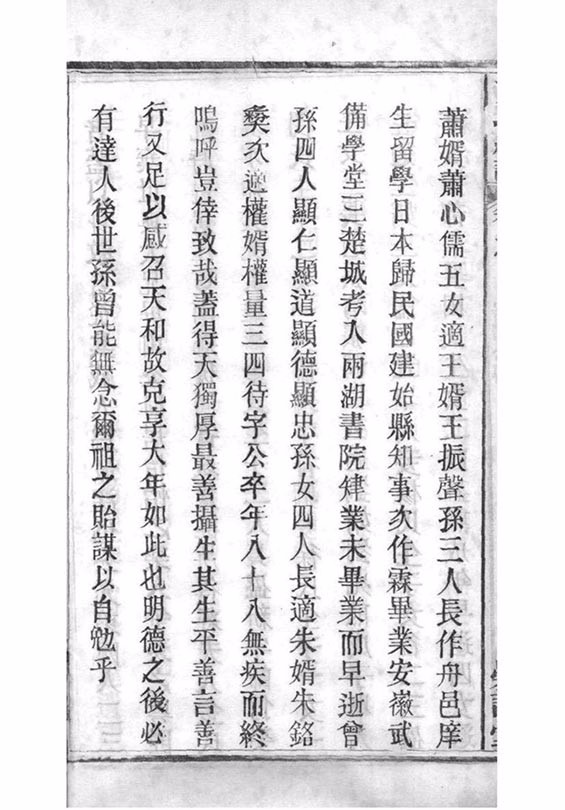 蕭婿蕭心儒五女適王婿王振聲孫三人長作舟邑庠
生留學日本歸民國建始縣知事次作霖畢業安徽武
備學堂三楚城考入兩湖書院肄業未畢業而早逝曾
孫四人顯仁顯道顯德顯忠孫女四人長適朱婿朱銘
奬次適權婿權量三四待字公卒年八十八無疾而終
嗚呼豈倖致哉蓋得天獨厚最善攝生其生平善言善
行又足以感召天和故克享大年如此也明德之後必
有達人後世孫曾能無念爾祖之貽謀以自勉乎